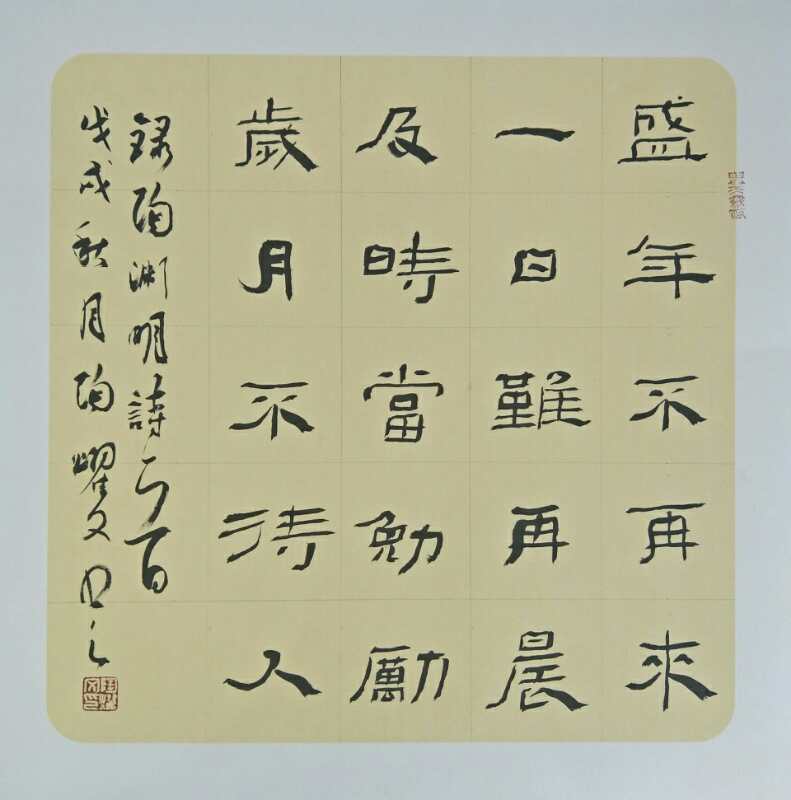 盛年不再來
一日難再晨
及時當勉勵
歲月不待人
錄陶淵明詩一百
戊戌秋月陶耀文書